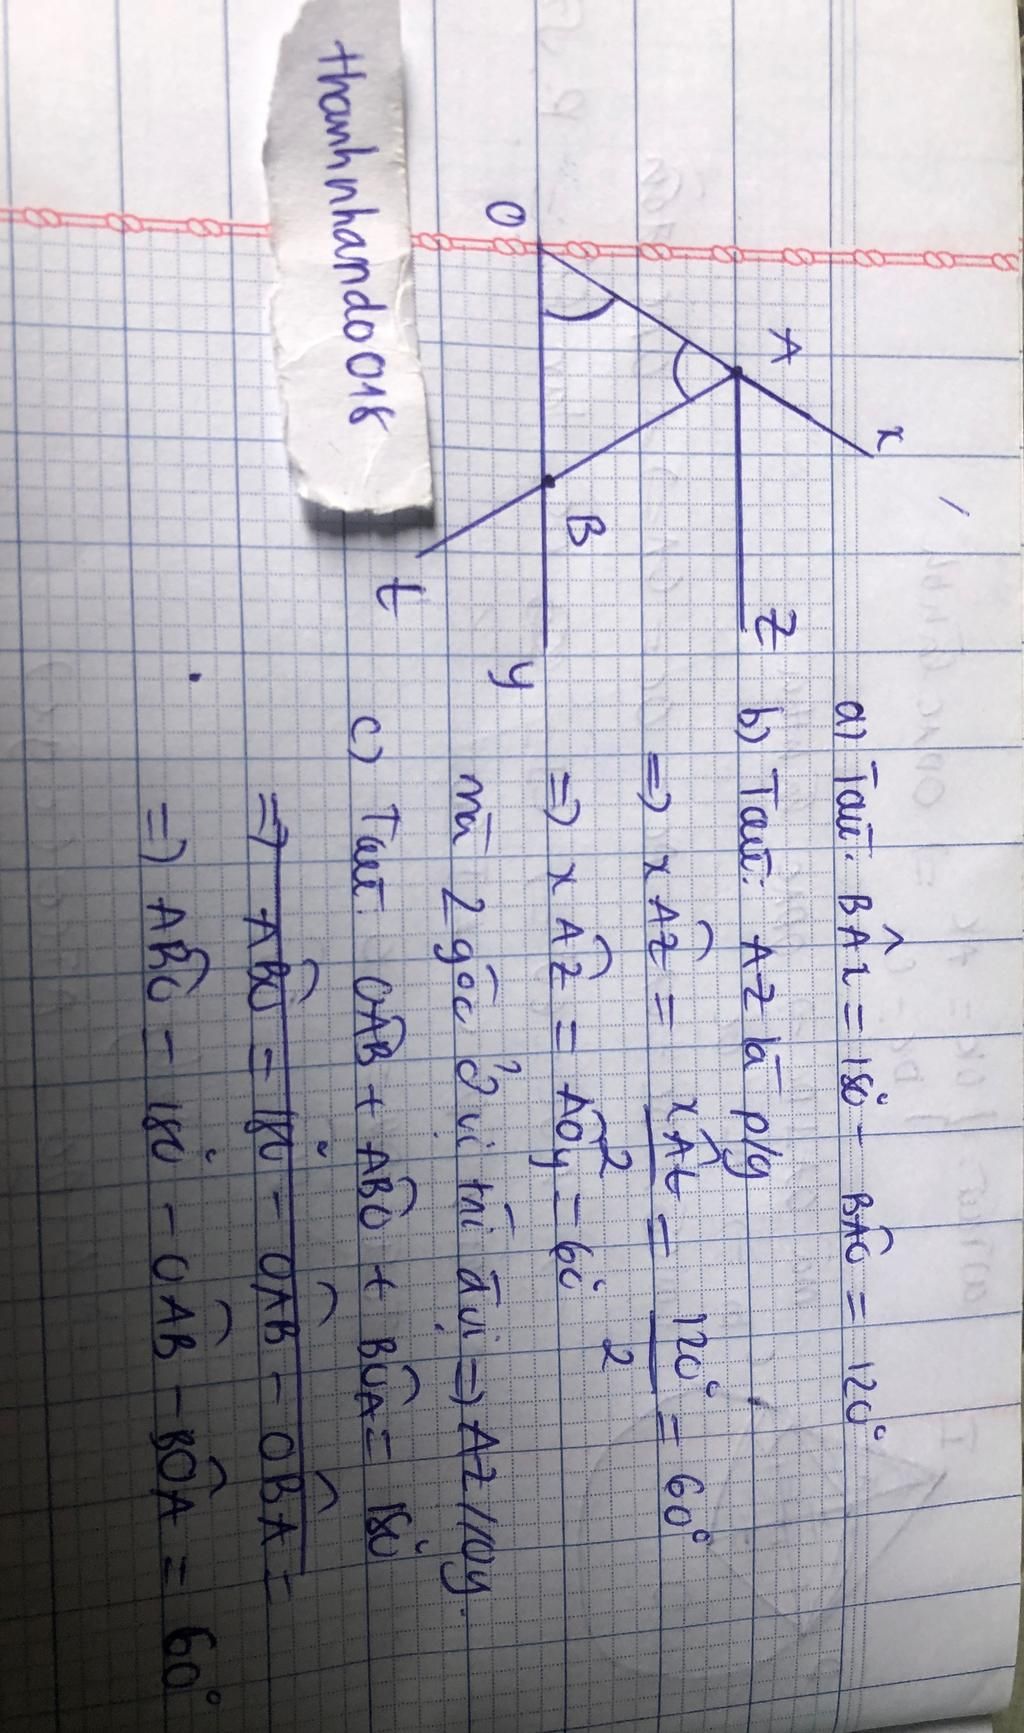 thanhnhando018
O
A
x
B
z
t
y
a) Ta có: BÂx = 180° - BÂO = 120°
b) Ta có: Az là p/g
=> xÂz = xÂt/2 = 120°/2 = 60°
=> xÂz = AÔy = 60°
mà 2 góc ở vị trí đ.vị => Az//Oy.
c) Ta có: OÂB + AB̂O + BÔA = 180°
=> AB̂O = 180° - OÂB - OB̂A =
=> AB̂O = 180° - OÂB - BÔA = 60°